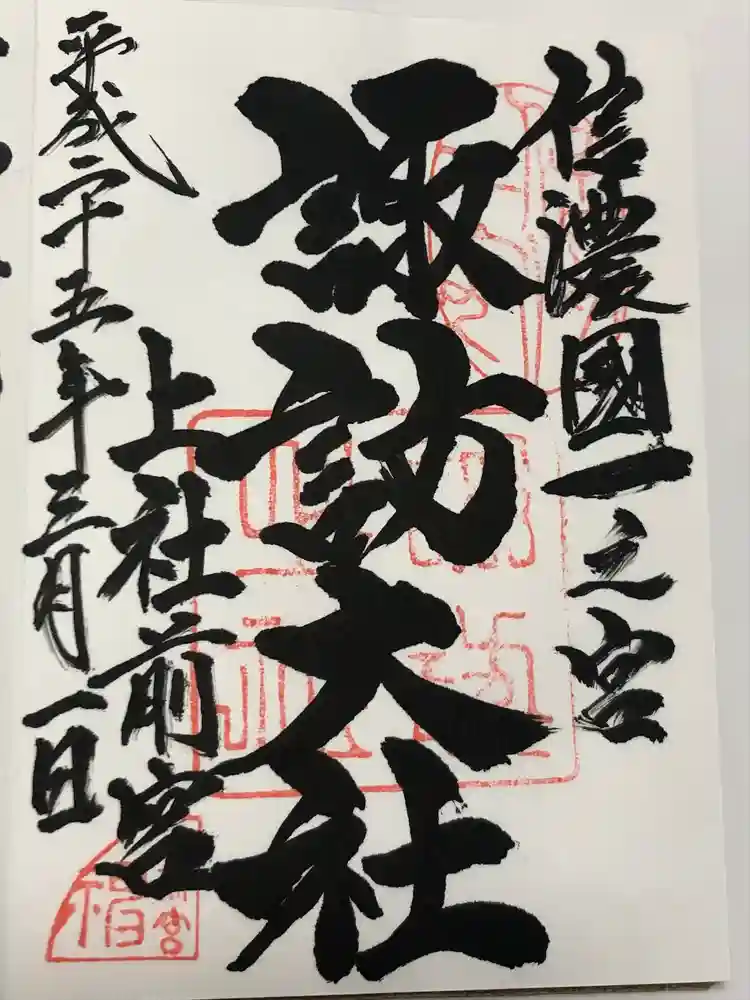 信濃國一之宮
諏訪大社
上社前宮
平成二十五年三月一日